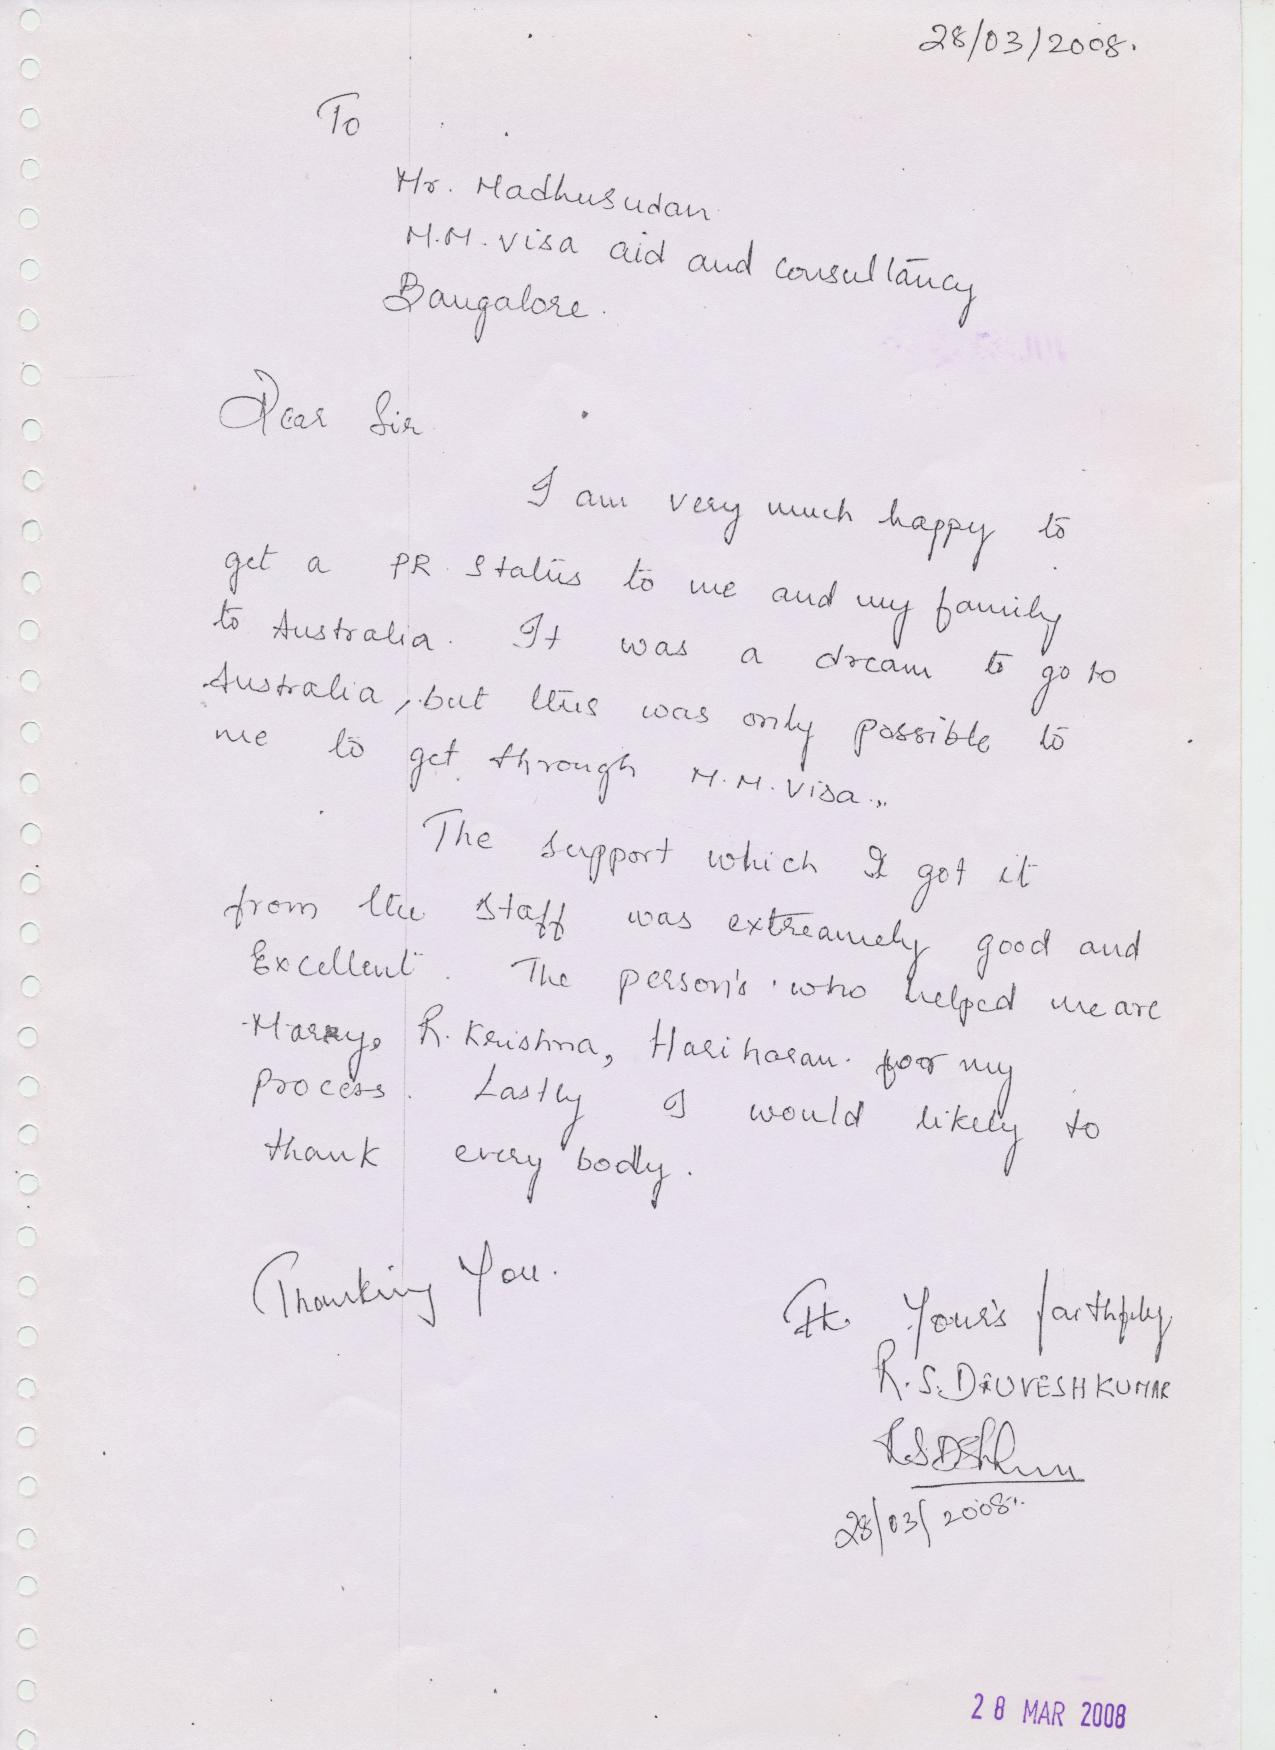 28/03/2008.
To
Mr. Madhusudan
M.M. Visa aid and consultancy
Bangalore.
Dear Sir
I am very much happy to
get a PR status to me and my family
to Australia. It was a dream to go to
Australia, but this was only possible to
me to get through M.M. Visa..
The support which I got it
from the staff was extreamely good and
Excellent. The person's who helped me are
Marry, R. Krishna, Hariharan. for my
process. Lastly I would likely to
thank every body.
Thanking You.
Your's faithfuly
R.S. DRUVESHKUMAR
28/03/2008.
28 MAR 2008